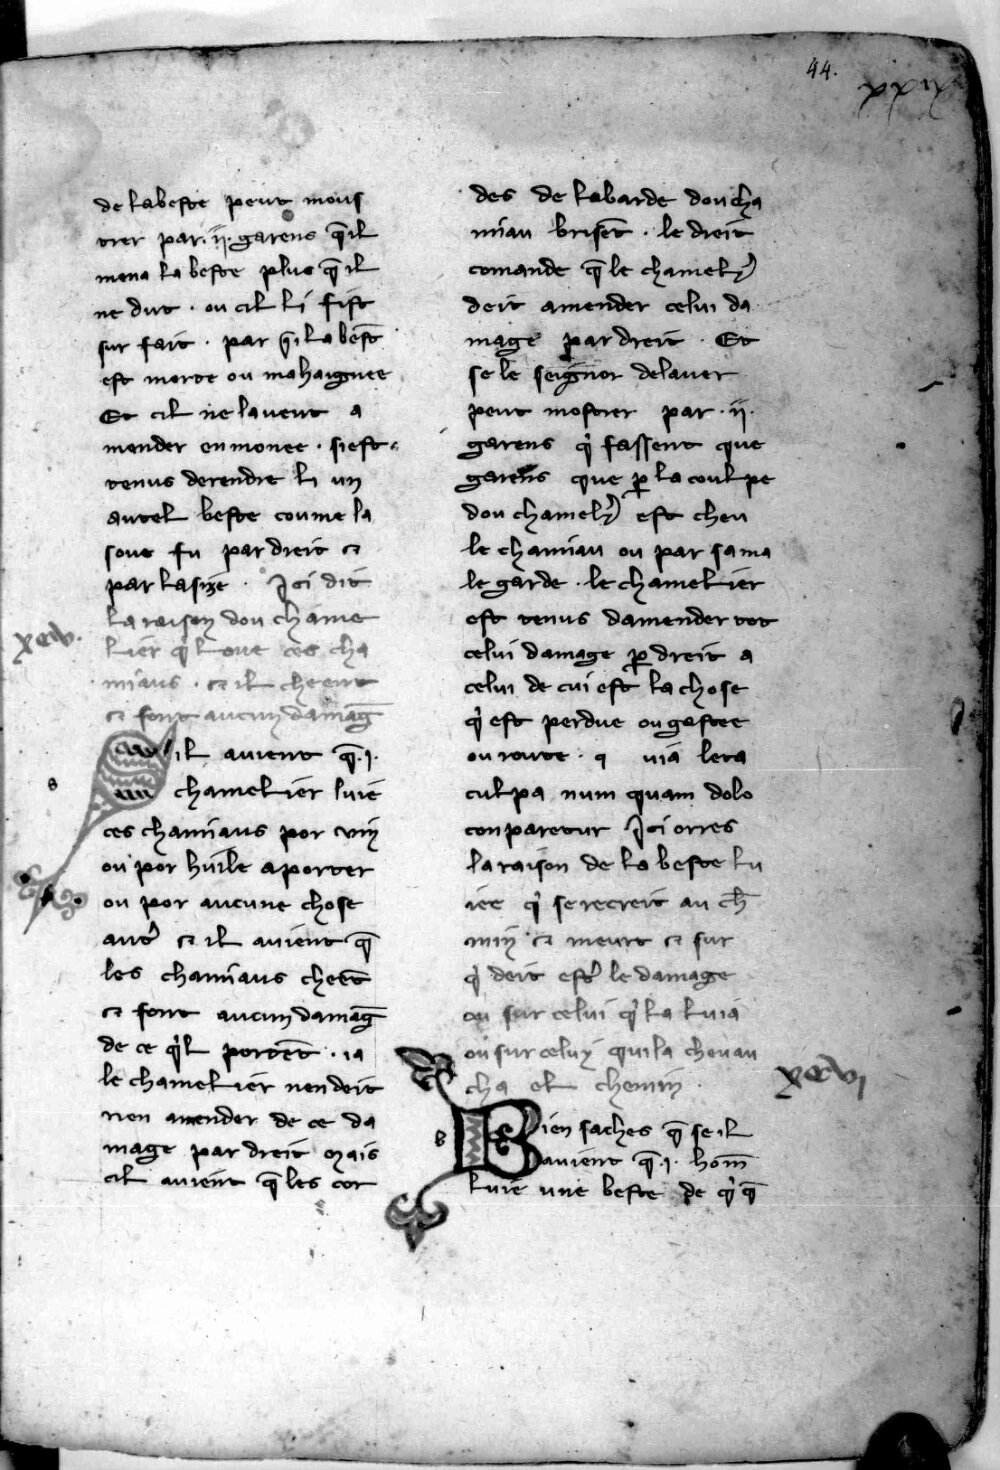 44.
xxxix
de la beste peut mous
trer par .ii. garens q̄ il
mena la beste plus q̄ il
ne dut . ou cil li fist
sur fait . par q̄i la best̄
est morte ou mahaignee
Et cil ne lavent a
mender en monee . si est
tenus de rendre li un
autel beste coume la
soue fu par dreit et
par lasize . Ici dit
la raison dou chame
lier q'l oue ces cha
miaus . et il cheent
et font aucun damaḡ
S'il avient q̄ .i.
chamelier luie
ces chamiaus por vin
ou por huile aporter
ou por aucune chose
aut' et il avient q̄
les chamiaus cheēt
et font aucun damaḡ
de ce q'l portēt . ia
le chamelier nen doit
rien amender de ce da
mage par dreit mais
cil avient q̄ les cor
des de la barde dou cha
miau brisēt . le dreit
comande q̄ le chamel'
deit amender celui da
mage par dreit . Et
se le seignor de laver
peut mostrer par .ii.
garens q' fassent que
garens que p̱ la coulpe
dou chamel' est cheu
le chamiau ou par sa ma
le garde . le chamelier
est tenus damender tot
celui damage p̱ dreit a
celui de cui est la chose
q' est perdue ou gastee
ou route . q uia lera
culpa num quam dolo
conparetur Ici orres
la raison de la beste lu
iee q' se recreit au ch̄
min et meurt et sur
q' deit est' le damage
ou sur celui q' la luia
ou sur celuy qui la chevau
cha el chemin .
Bien saches q̄ se il
avient q̄ .i. hom̄
luie une beste de q' q̄
xcv.
xcvi
s
b